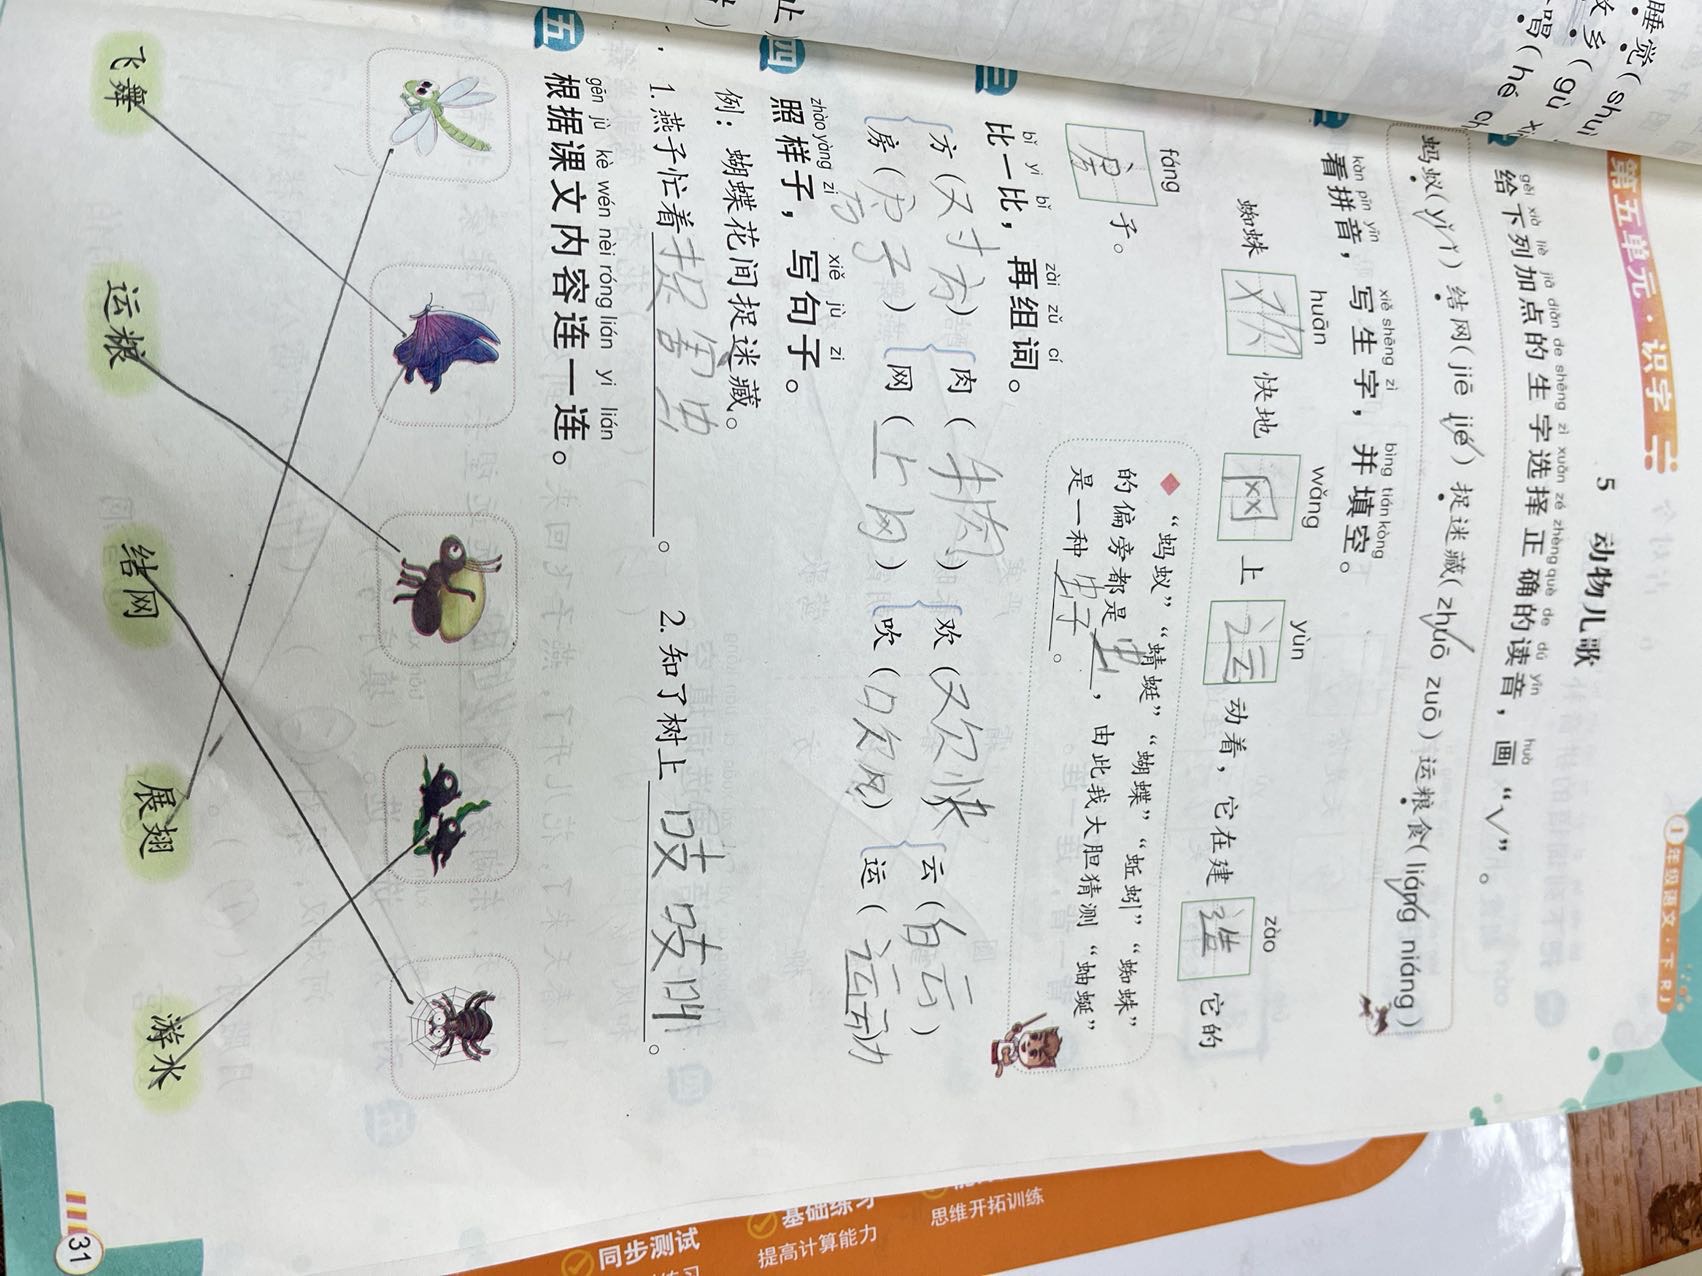 睡觉(shuì
乡(gù xi
喝(hē ch
第五单元·识字二
1年级语文·下 RJ
5 动物儿歌
gěi xià liè jiā diǎn de shēng zì xuǎn zé zhèng què de dú yīn huà
给下列加点的生字选择正确的读音，画“√”。
蚂蚁(yǐ yì) 结网(jiē jié) 捉迷藏(zhuō zuō) 运粮食(liáng niáng)
二
kàn pīn yīn xiě shēng zì bìng tián kòng
看拼音，写生字，并填空。
huān wǎng yùn zào
蜘蛛 欢 快地 网 上 运 动着，它在建 造 它的
fáng
房 子。
“蚂蚁”“蜻蜓”“蝴蝶”“蚯蚓”“蜘蛛”
的偏旁都是 虫，由此我大胆猜测“蚰蜒”
是一种 虫子。
三
bǐ yi bǐ zài zǔ cí
比一比，再组词。
方(对方) 肉(牛肉) 欢(欢快) 云(白云)
房(房子) 网(上网) 吹(吹风) 运(运动
四
zhào yàng zi xiě jù zi
照样子，写句子。
例：蝴蝶花间捉迷藏。
1. 燕子忙着 捉害虫。 2. 知了树上 吱吱叫。
五
gēn jù kè wén nèi róng lián yi lián
根据课文内容连一连。
飞舞 运粮 结网 展翅 游水
31
同步测试
基础练习
提高计算能力
思维开拓训练